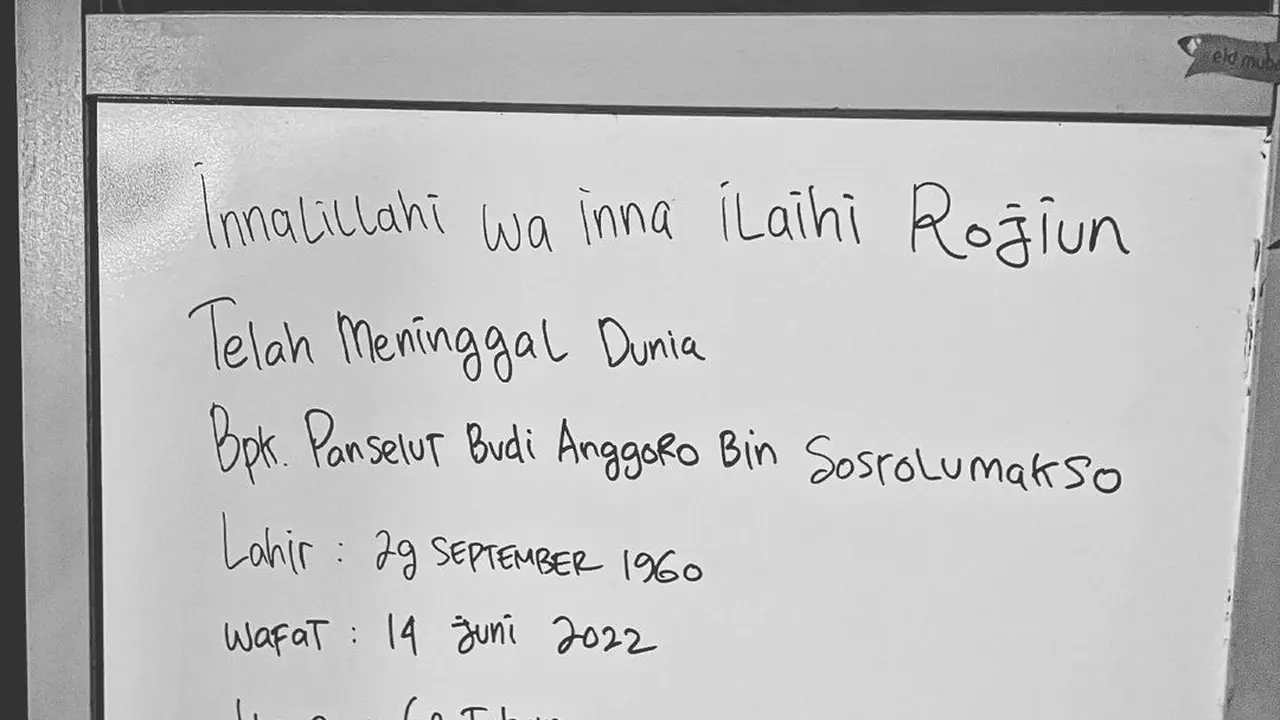 eid mub
Innalillahi wa inna ilaihi Rojiun
Telah Meninggal Dunia
Bpk. Panselut Budi Anggoro Bin Sosrolumakso
Lahir : 29 SEPTEMBER 1960
Wafat : 14 Juni 2022